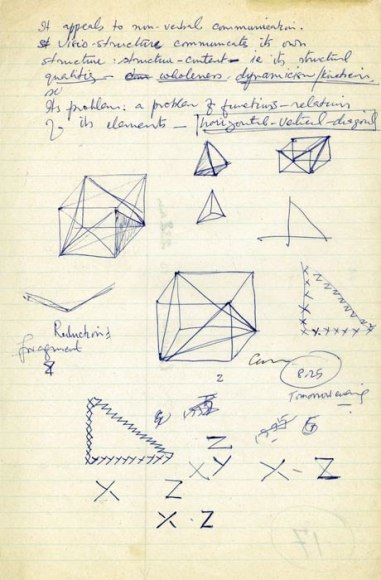 It appeals to non-verbal communication.
A visio-structure communicate its own
structure: structure-content - ie its structural
qualities - wholeness - dynamicism/kineticism,
Its problem: a problem of functions-relations
of its elements - horizontal-vertical-diagonal
Reductions
fragment
8.25
Tomorrow evening
2
Z
X Y X - Z
X Z
X . Z
17